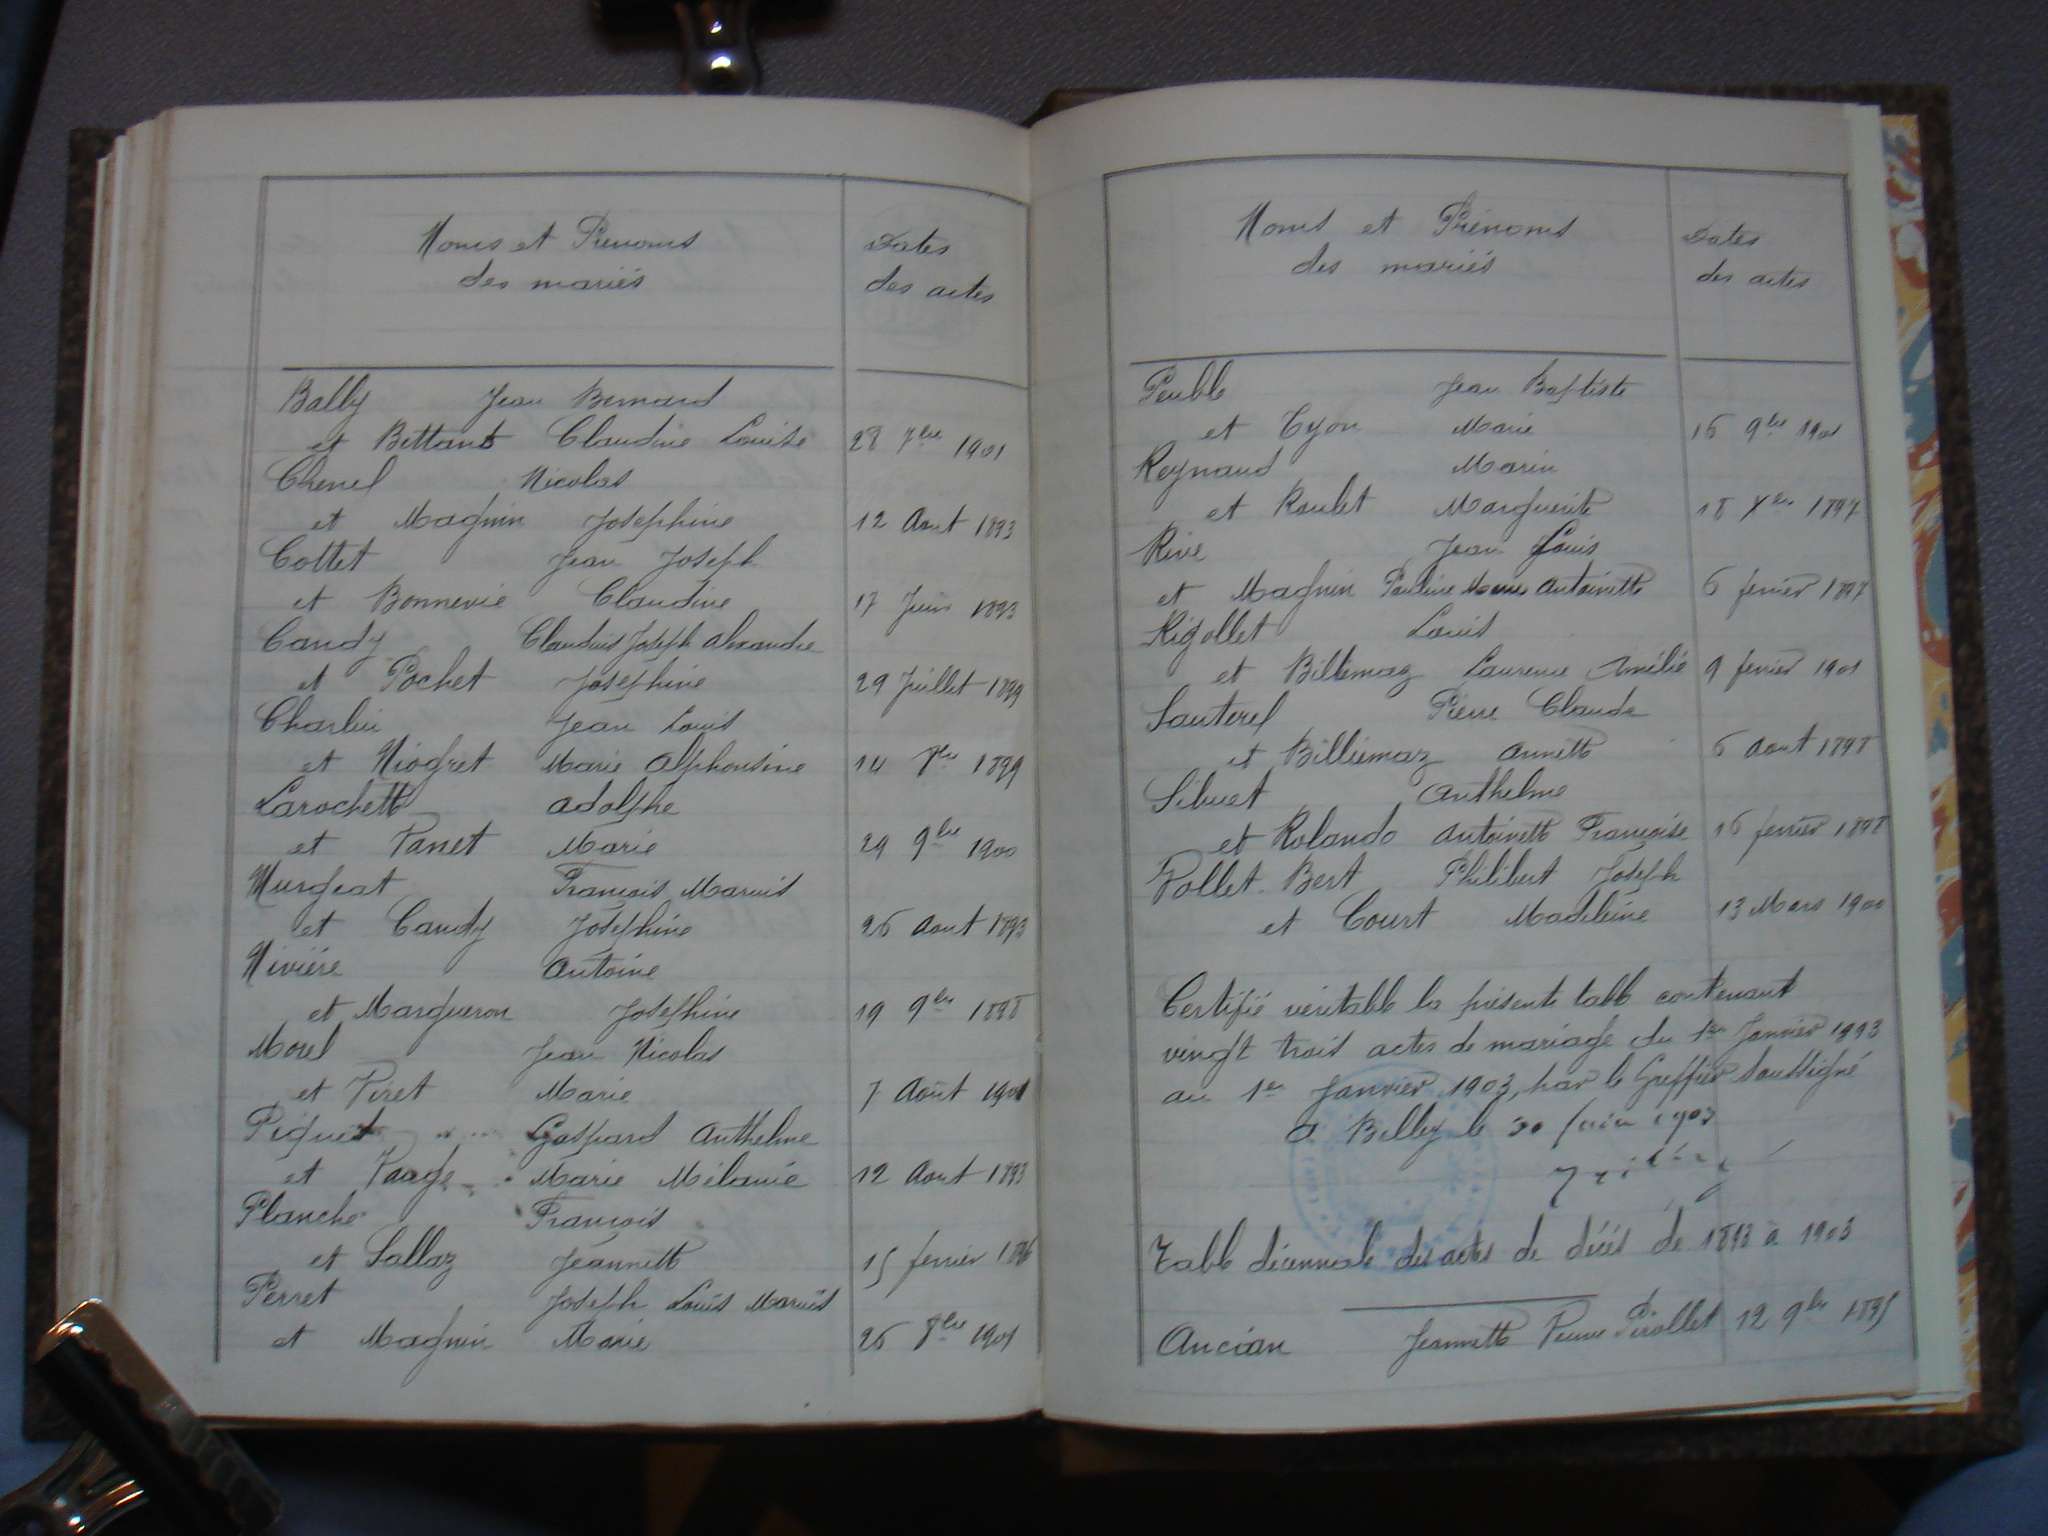 Noms et Prénoms
des mariés
Dates
des actes
Bally Jean Bernard
et Bettant Claudine Louise 28 7bre 1901
Chenel Nicolas
et Magnin Josephine 12 Aout 1893
Cottet Jean Joseph
et Bonnevie Claudine 17 Juin 1893
Candy Claudius Joseph Alexandre
et Pochet Joséphine 29 Juillet 1899
Charlin Jean Louis
et Niogret Marie Alphonsine 14 1899
Larochette Adolphe
et Panet Marie 29 9bre 1900
Murgeat François Marius
et Candy Joséphine 26 Aout 1893
Nivière Antoine
et Margueron Joséphine 19 9bre 1898
Morel Jean Nicolas
et Piret Marie 7 Août 1901
Piquet Gaspard Anthelme
et Marie Mélanie 12 Aout 1893
Planche François
et Sallaz Jeannette 15 fevrier 1896
Perret Joseph Louis Marius
et Magnin Marie 26 8bre 1901
Noms et Prénoms
des mariés
Dates
des actes
Peuble Jean Baptiste
et Cyon Marie 16 9bre 1901
Reynaud Marin
et Roulet Marguerite 18 Xbre 1897
Rive Jean Louis
et Magnin Pauline Marie Antoinette 6 fevrier 1897
Rigollet Louis
et Billiemaz Laurence Amélie 9 fevrier 1901
Sauterel Pierre Claude
et Billiemaz Annette 6 Aout 1898
Sibuet Anthelme
et Rolando Antoinette Françoise 16 fevrier 1898
Vollet-Bert Philibert Joseph
et Court Madeleine 13 Mars 1900
Certifié véritable la présente table contenant
vingt trois actes de mariage du 1er Janvier 1893
au 1er Janvier 1903, par le Greffier soussigné
à Belley le 30 Juin 1903
Table décennale des actes de décès de 1893 à 1903
Ancian Jeannette Pierre 12 9bre 1895